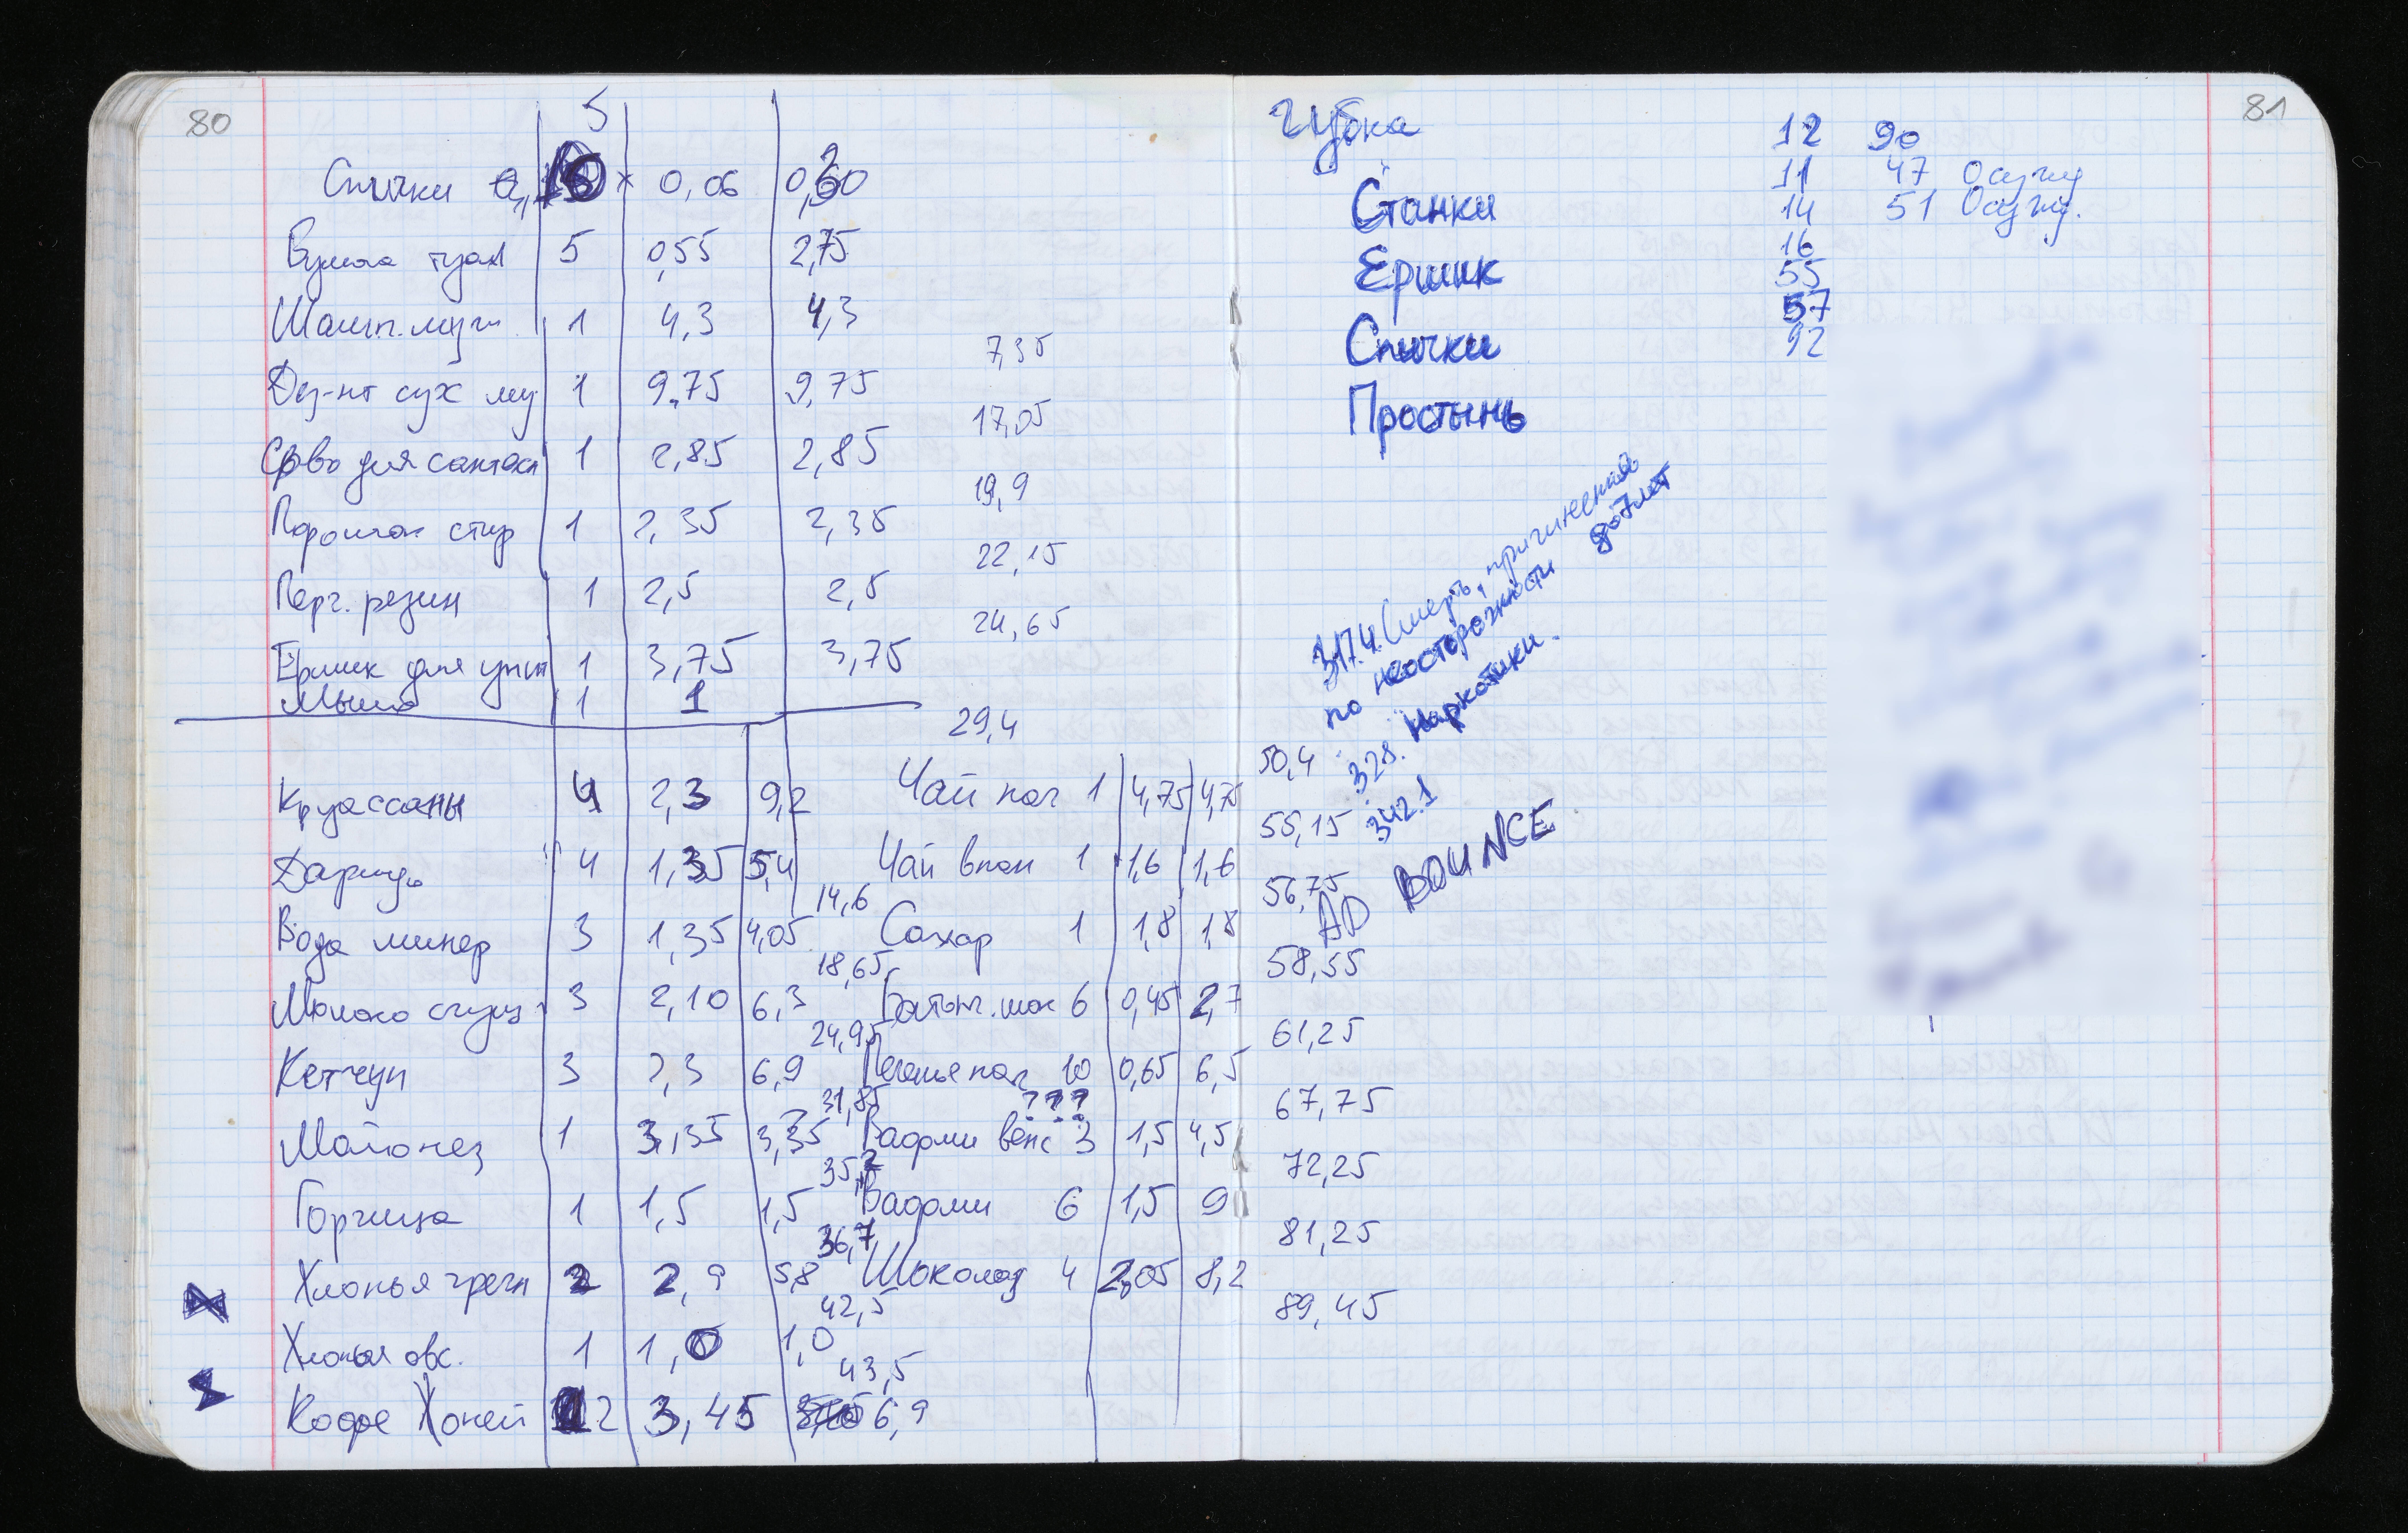 80
5
Спички × 0,06 0,30
Бумага туал 5 0,55 2,75
Шамп. муж 1 4,3 4,3
7,35
Дез-нт сух му 1 9,75 9,75
17,05
Ср-во для сантехн 1 2,85 2,85
19,9
Порошок стир 1 2,35 2,35
22,15
Перч. резин 1 2,5 2,5
24,65
Ершик для унит 1 3,75 3,75
Мыло 1 1
29,4
Круассаны 4 2,3 9,2
4 1,35 5,4
14,6
Вода минер 3 1,35 4,05
18,65
Молоко сгущ 3 2,10 6,3
24,95
Кетчуп 3 2,3 6,9
31,85
Майонез 1 3,35 3,35
35,2
Горчица 1 1,5 1,5
36,7
Хлопья гречн 2 2,9 5,8
42,5
Хлопья овс. 1 1,0 1,0
43,5
Кофе 2 3,45 6,9
50,4
Чай пак 1 4,75 4,75
55,15
Чай 1 1,6 1,6
56,75
Сахар 1 1,8 1,8
58,55
Батонч. шок 6 0,45 2,7
61,25
Печенье пач 10 0,65 6,5
67,75
???
Вафли венс 3 1,5 4,5
72,25
Вафли 6 1,5 9
81,25
Шоколад 4 2,05 8,2
89,45
81
Губка
Станки
Ершик
Спички
Простынь
12 90
11 47 Осужд
14 51 Осужд.
16
55
57
92
317.4. Смерть, причиненная
по неосторожности до 7 лет
328. Наркотики.
342.1
AD BOUNCE